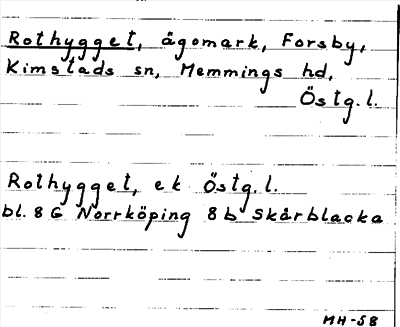 Rothygget, ägomark, Forsby,
Kimstads sn, Memmings hd,
Östg.l.
Rothygget, ek Östg.l.
bl. 8 G Norrköping 8 b Skärblacka
MH-58